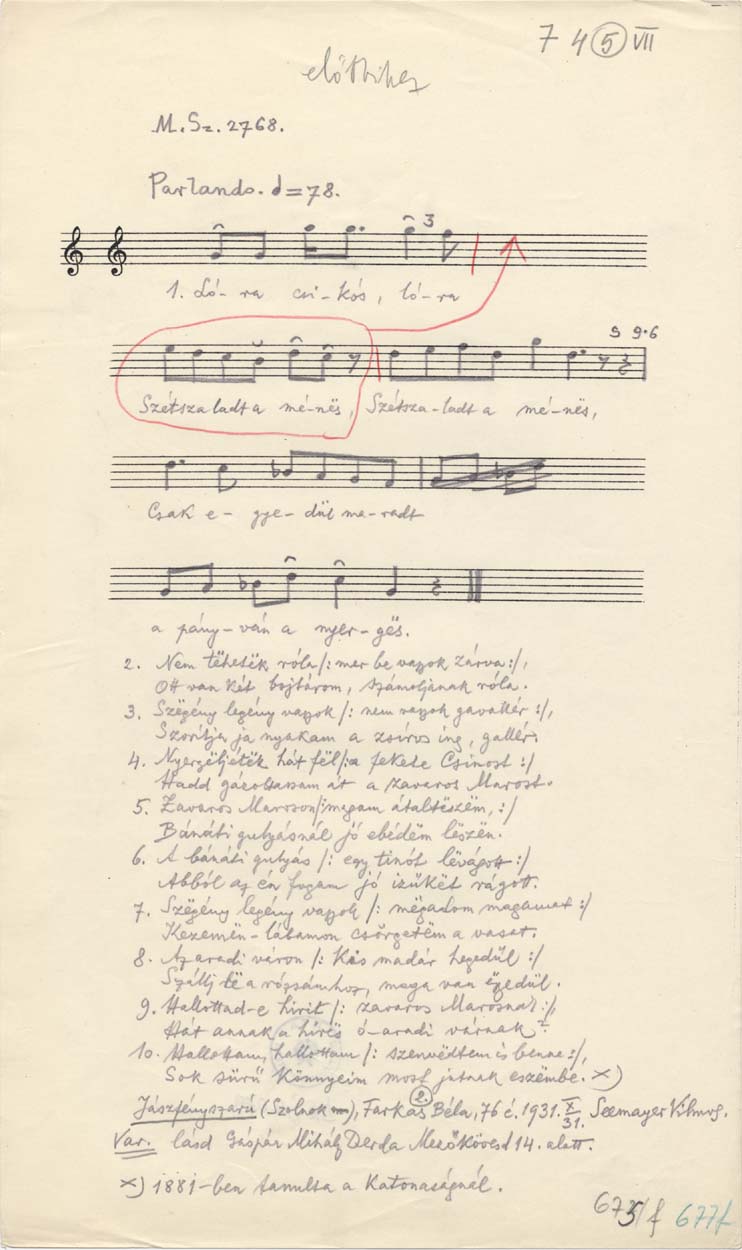 7 4 5 VII
előttihez
M. Sz. 2768.
Parlando. ♩=78.
3
1. Ló- ra csi-kós, ló-ra
5 9·6
Szétsza ladt a mé-nës, Szétsza-ladt a mé-nës,
Csak e- gye-dül ma-radt
a pány-ván a nyer-gës.
2. Nem tëhetëk róla /: mer be vagyok zárva :/,
Ott van két bojtárom, számoljanak róla.
3. Szëgény legény vagyok /: nem vagyok gavallér :/,
Szorítja ja nyakam a zsíros ing, gallér.
4. Nyergëljétëk hát fël /: a fekete Csinost :/
Hadd gázoltassam át a zavaros Marost.
5. Zavaros Maroson /: magam átaltëszëm, :/
Bánáti gulyásnál jó ebédëm lëszën.
6. A bánáti gulyás /: egy tinót lëvágott :/
Abból az én fogam jó izükët rágott.
7. Szëgény legény vagyok /: mëgadom magamat :/
Kezemën-lábamon csörgetëm a vasat.
8. Az aradi váron /: Kis madár hegedül :/
Szállj të a rózsámhoz, maga van ëgyedül.
9. Hallottad-e hirit /: zavaros Marosnak :/,
Hát annak a hírës ó-aradi várnak?
10. Hallottam, hallottam /: szenvedtem is benne :/,
Sok sürü Könnyeim most jutnak eszëmbe. x)
Jászfényszaru (Szolnok m), Farkas Béla, 76 é. 1931. X/31. Seemayer Vilmos.
2.
Var. lásd Gáspár Mihály Derda Mezőkövesd 14. alatt.
x) 1881-ben tanulta a Katonaságnál.
675/f 677f